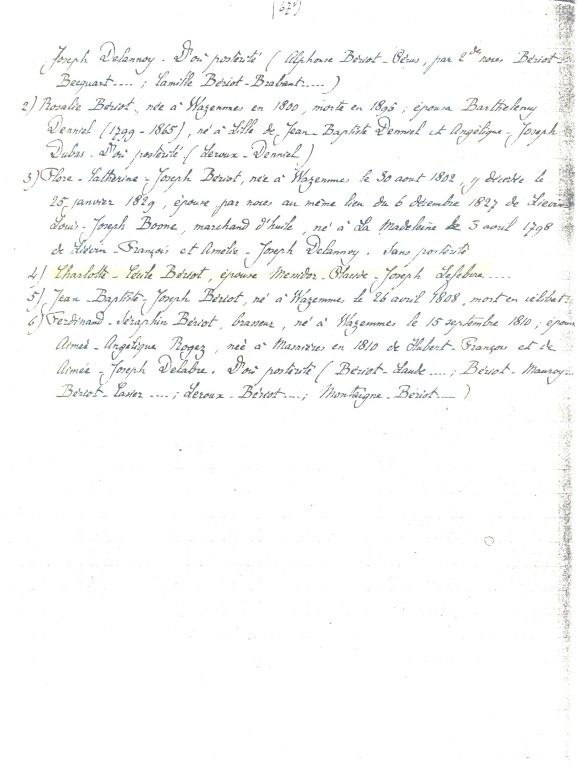 (67)
Joseph Delannoy. D'où postérité (Alphonse Bériot-Cérus, par 2des noces Bériot-
Becquart....; Camille Bériot-Brabant....)
2) Rosalie Bériot, née à Wazemmes en 1800, morte en 1896; épousa Barthélemy
Denniel (1799-1865), né à Lille de Jean-Baptiste Denniel et Angélique-Joseph
Dubus. D'où postérité (Leroux-Denniel)
3) Flore-Catherine-Joseph Bériot, née à Wazemmes le 30 aout 1802, y décédée le
25 janvier 1829, épouse par noces au même lieu du 6 décembre 1827 de Lieven
Louis-Joseph Boone, marchand d'huile, né à La Madeleine le 5 avril 1798
de Liévin-François et Amélie-Joseph Delannoy. Sans postérité
4) Charlotte-Cécile Bériot, épouse Mendor-Placide-Joseph Lefebvre....
5) Jean-Baptiste-Joseph Bériot, né à Wazemmes le 26 avril 1808, mort en célibat
6) Ferdinand-Séraphin Bériot, brasseur, né à Wazemmes le 15 septembre 1810; épou
Aimée-Angélique Rogez, née à Masnières en 1810 de Hubert-François et de
Aimée-Joseph Delabre. D'où postérité (Bériot-Laude....; Bériot-Mauroy...
Bériot-Casier....; Leroux-Bériot....; Montaigne-Bériot....)